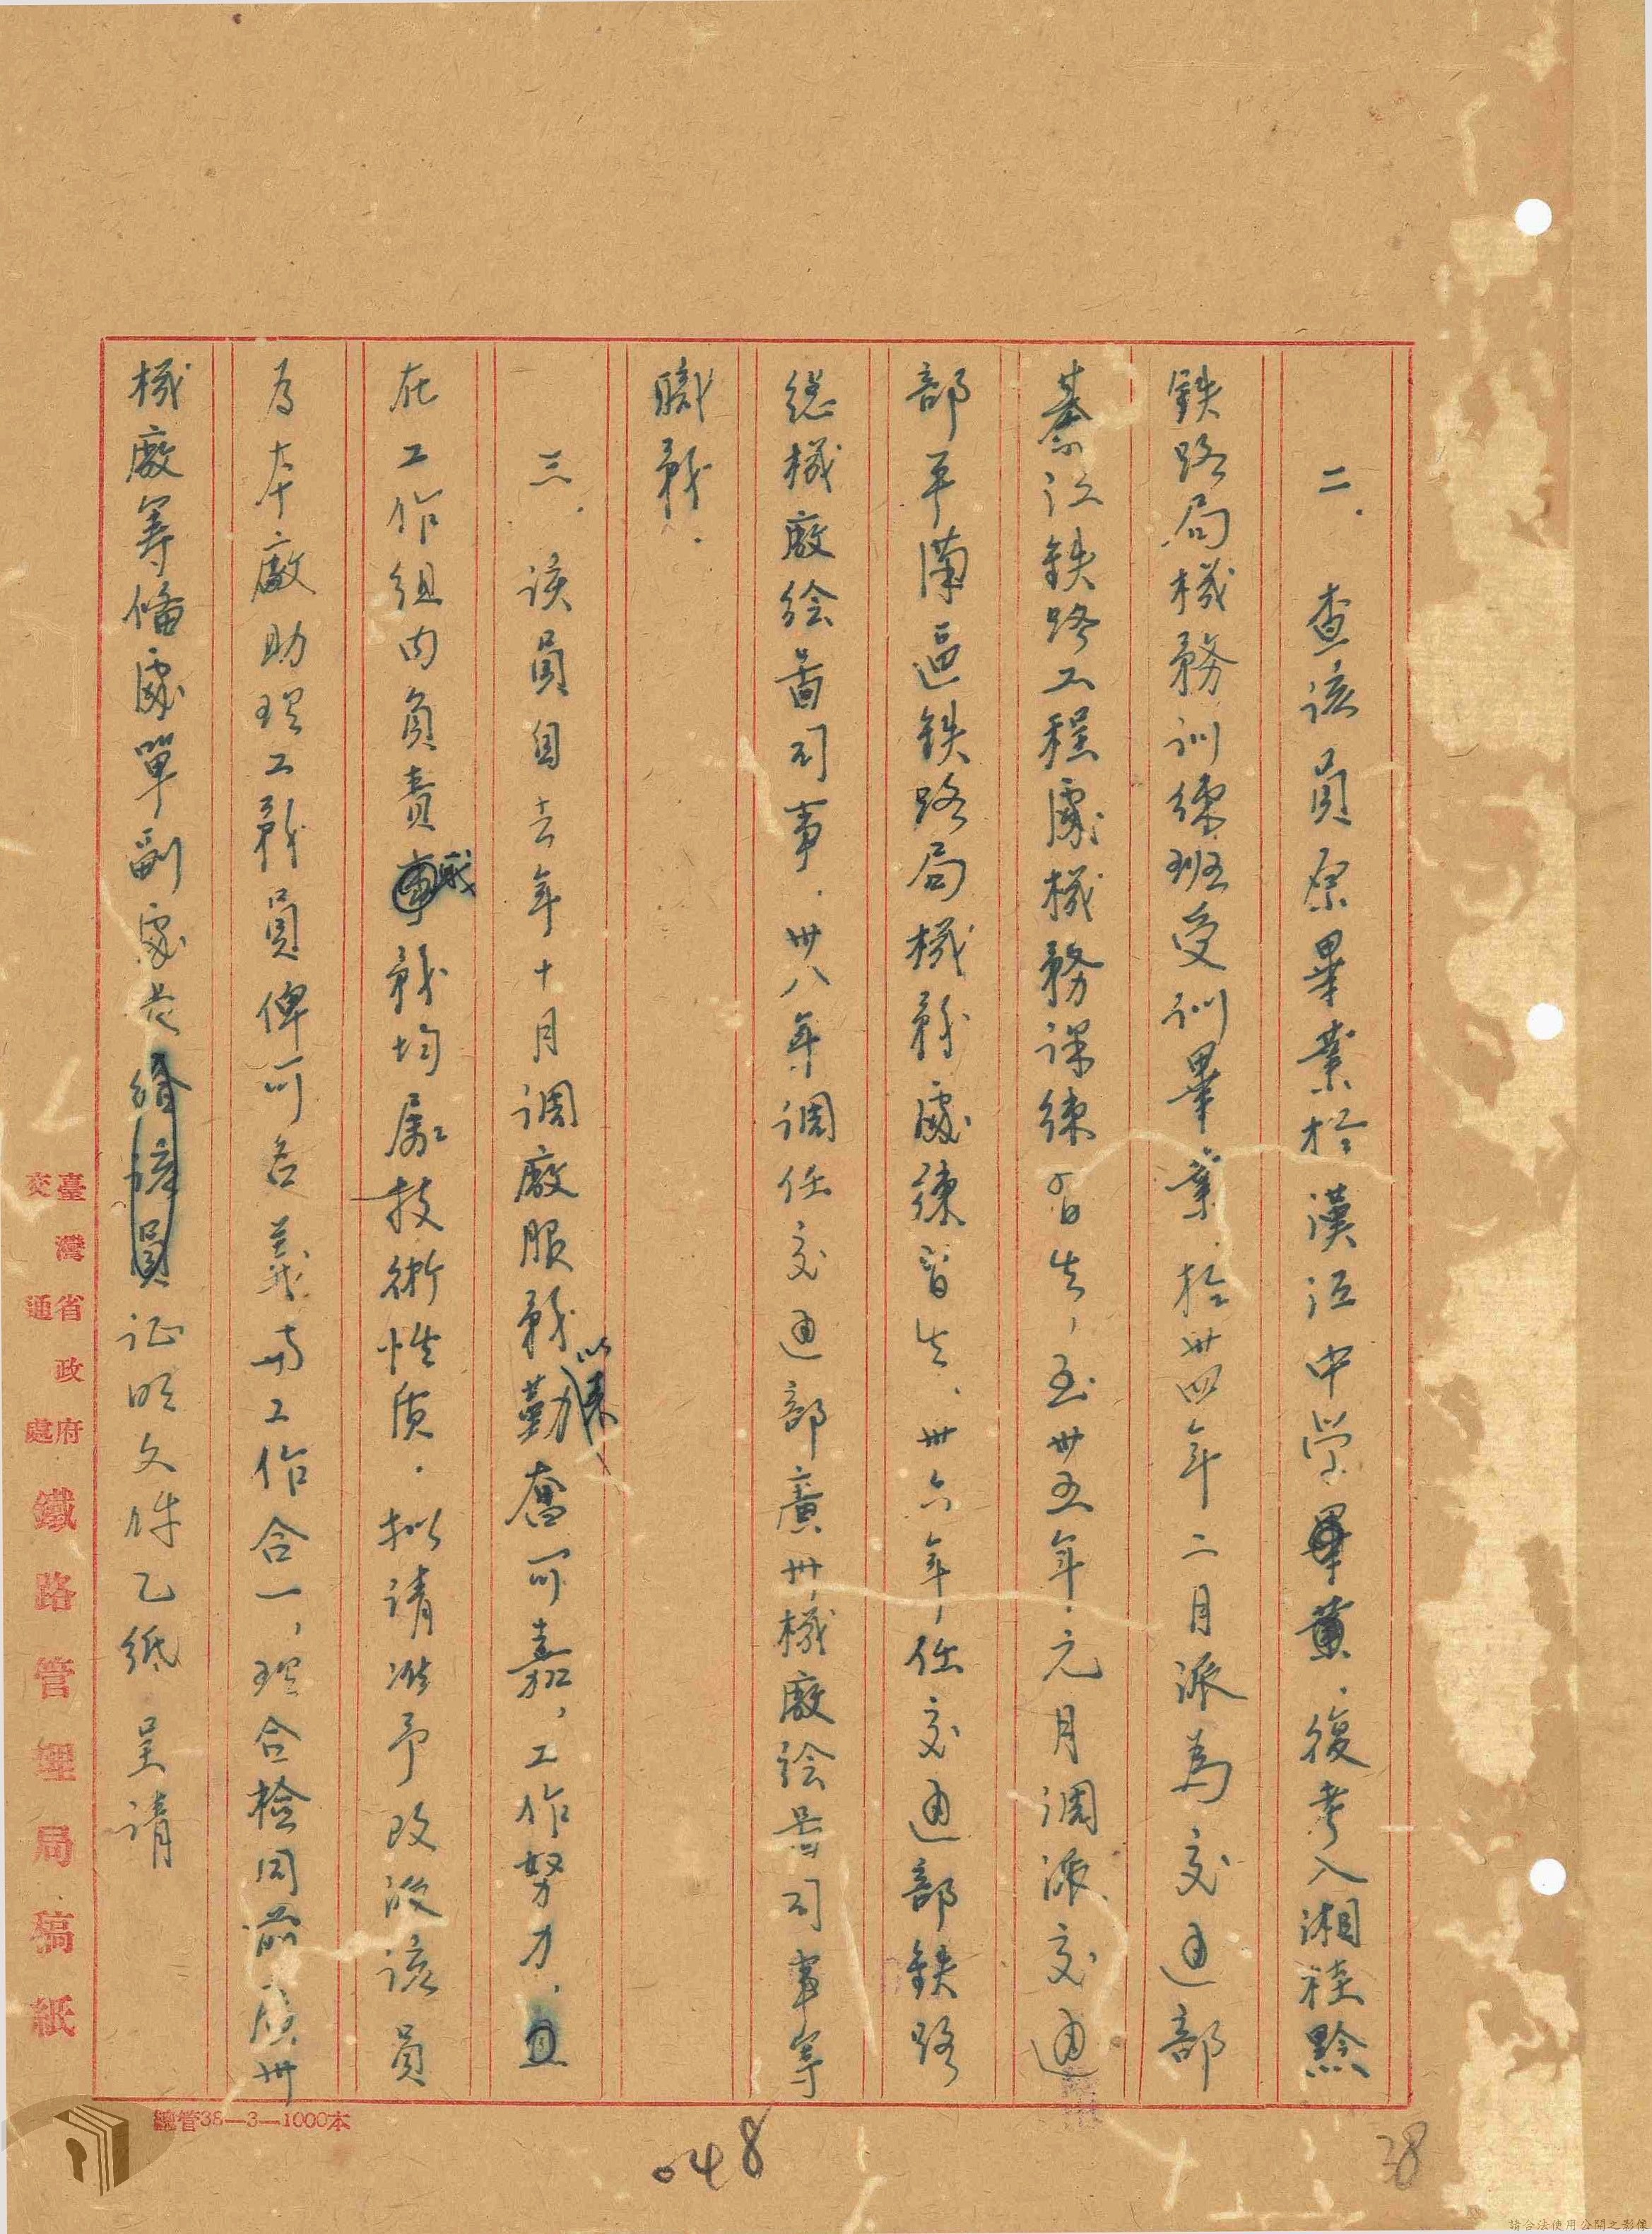 二.查該員原畢業於漢江中学畢業.復考入湘桂黔
鉄路局機務训練班受训畢業.於卅四年二月派為交通部
綦江鉄路工程處機務課練習生,至卅五年元月调派交通
部平漢區鉄路局機務處練習生、卅六年任交通部鉄路
總機廠绘啚司事.卅八年调任交通部廣州機廠绘啚司事等
職務.
三.该員自去年十月调廠服務以来勤奮可嘉,工作努力.且
在工作组内負責職務均属技術性质.拟請准予改派該員
为本廠助理工務員俾可名義与工作合一,理合檢同前廣州
機廠籌備處單副處长 证明文件乙紙 呈請
臺灣省政府
交通處
鐵路管理局稿紙
總管38—3—1000本
048
38
請合法使用公開之影像